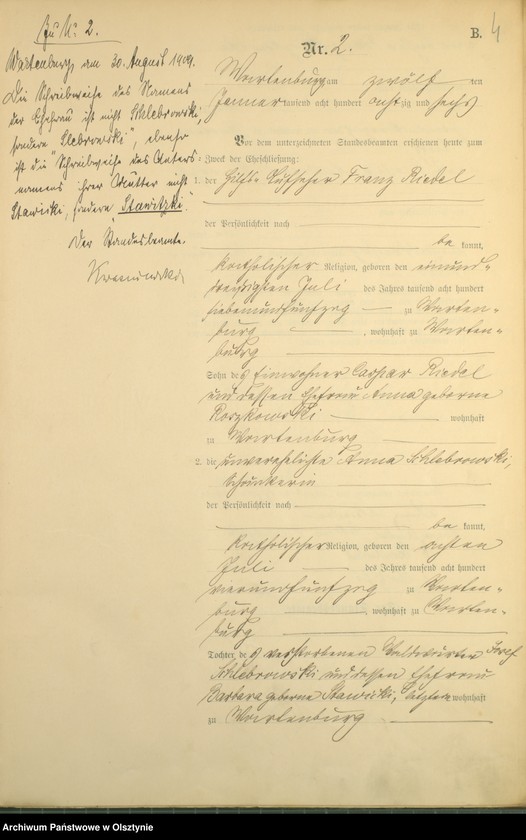 Zu Nr. 2.
Wartenburg, am 30. August 1909.
Die Schreibweise des Namens
der Ehefrau ist nicht Schlebrowski,
sondern "Slebrowski", ebenso
ist die Schreibweise des
namens ihrer Mutter nicht
Stawicki, sondern Stawitzki.
Der Standesbeamte.
B. 4
Nr. 2.
Wartenburg am zwölf ten
Januar tausend acht hundert achtzig und sechs
Vor dem unterzeichneten Standesbeamten erschienen heute zum
Zweck der Eheschließung:
1. der Franz Riedel
der Persönlichkeit nach
be kannt,
katholischer Religion, geboren den einund-
dreißigsten Juli des Jahres tausend acht hundert
siebenundfünfzig zu Warten-
burg, wohnhaft zu Warten-
burg
Sohn des Einwohner Caspar Riedel
und dessen Ehefrau Anna geborne
Roszkowski wohnhaft
zu Wartenburg
2. die unverehelichte Anna Schlebrowski,
der Persönlichkeit nach
be kannt,
katholischer Religion, geboren den achten
Juli des Jahres tausend acht hundert
vierundfünfzig zu Warten-
burg, wohnhaft zu Warten-
burg
Tochter des verstorbenen Waldwärter Josef
Schlebrowski und dessen Ehefrau
Barbara geborne Stawicki, wohnhaft
zu Wartenburg
Archiwum Państwowe w Olsztynie